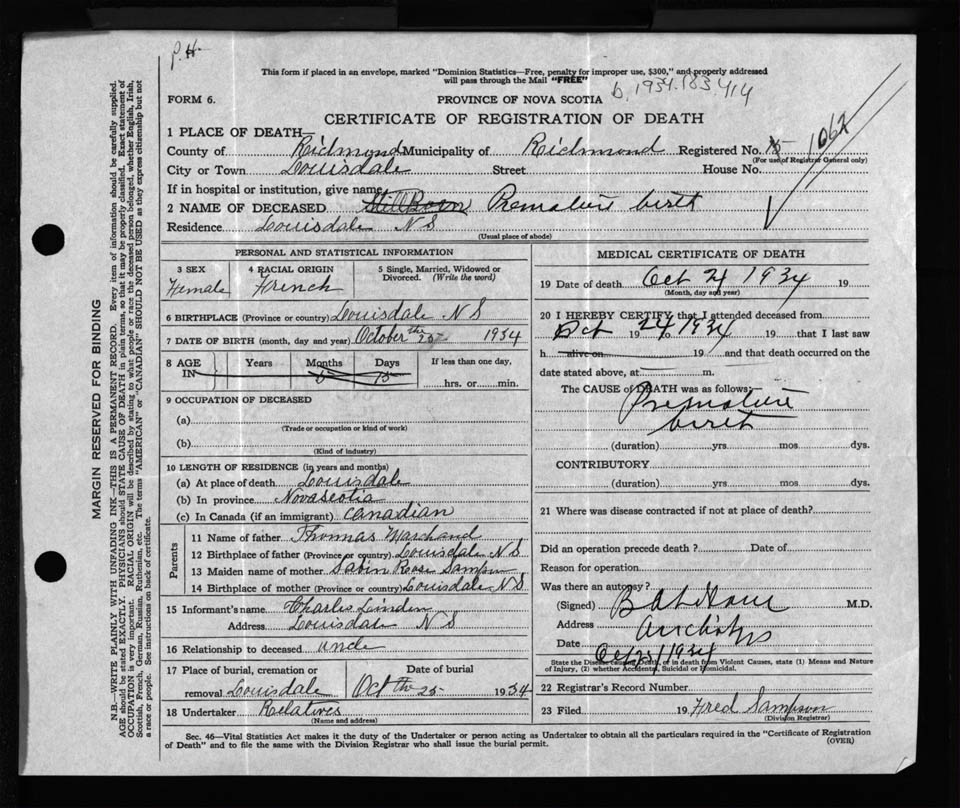 P.H.
This form if placed in an envelope, marked "Dominion Statistics—Free, penalty for improper use, $300," and properly addressed
will pass through the Mail "FREE"
b. 1934.183414
FORM 6.
PROVINCE OF NOVA SCOTIA
CERTIFICATE OF REGISTRATION OF DEATH
1062
1 PLACE OF DEATH—
County of Richmond Municipality of Richmond Registered No.
(For use of Registrar General only)
City or Town Louisdale Street House No.
If in hospital or institution, give name
2 NAME OF DECEASED StillBorn Premature birth
Residence Louisdale N S
(Usual place of abode)
PERSONAL AND STATISTICAL INFORMATION
3 SEX Female
4 RACIAL ORIGIN French
5 Single, Married, Widowed or Divorced. (Write the word)
6 BIRTHPLACE (Province or country) Louisdale N S
7 DATE OF BIRTH (month, day and year) October the 25 1934
8 AGE IN Years Months Days If less than one day,
hrs. or min.
9 OCCUPATION OF DECEASED
(a)
(Trade or occupation or kind of work)
(b)
(Kind of industry)
10 LENGTH OF RESIDENCE (in years and months)
(a) At place of death Louisdale
(b) In province Novascotia
(c) In Canada (if an immigrant) Canadian
Parents
11 Name of father Thomas Marchand
12 Birthplace of father (Province or country) Louisdale N S
13 Maiden name of mother Sabin Rose Sampson
14 Birthplace of mother (Province or country) Louisdale N S
15 Informant's name Charles Linden
Address Louisdale N S
16 Relationship to deceased uncle
17 Place of burial, cremation or Date of burial
removal Louisdale Oct th 25 1934
18 Undertaker Relatives
(Name and address)
MEDICAL CERTIFICATE OF DEATH
19 Date of death Oct 24 1934 19
(Month, day and year)
20 I HEREBY CERTIFY that I attended deceased from
Oct 24 1934 19 to 19 that I last saw
h alive on 19 and that death occurred on the
date stated above, at m.
The CAUSE of DEATH was as follows:
Premature
birth
(duration) yrs. mos. dys.
CONTRIBUTORY
(duration) yrs. mos. dys.
21 Where was disease contracted if not at place of death?
Did an operation precede death ? Date of
Reason for operation
Was there an autopsy ?
(Signed) M.D.
Address
Date Oct 1934
State the Disease causing Death, or in death from Violent Causes, state (1) Means and Nature
of Injury, (2) whether Accidental, Suicidal or Homicidal.
22 Registrar's Record Number
23 Filed 19 Fred Sampson
(Division Registrar)
Sec. 46—Vital Statistics Act makes it the duty of the Undertaker or person acting as Undertaker to obtain all the particulars required in the "Certificate of Registration
of Death" and to file the same with the Division Registrar who shall issue the burial permit.
(OVER)
MARGIN RESERVED FOR BINDING
N.B.—WRITE PLAINLY WITH UNFADING INK—THIS IS A PERMANENT RECORD. Every item of information should be carefully supplied.
AGE should be stated EXACTLY. PHYSICIANS should STATE CAUSE OF DEATH in plain terms, so that it may be properly classified. Exact statement of
OCCUPATION is very important. RACIAL ORIGIN will be described by stating to what people or race the deceased person belonged, whether English, Irish,
Scottish, French, German, Russian, Ruthenian, etc. The terms "AMERICAN" or "CANADIAN" SHOULD NOT BE USED as they express citizenship but not
a race or people. See instructions on back of certificate.